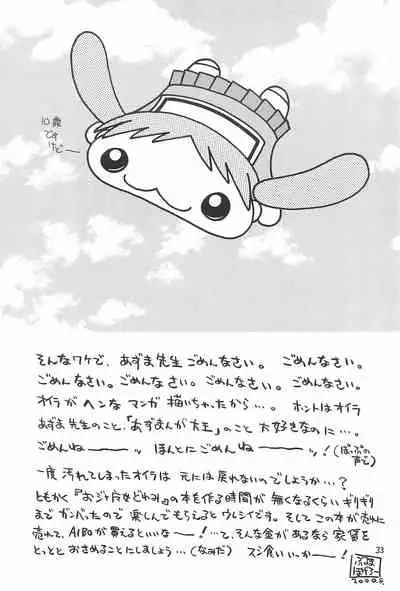 10歳
です
けど
そんなワケで、あずま先生ごめんなさい。 ごめんなさい。
ごめんなさい。ごめんなさい。ごめんなさい。ごめんなさい。
オイラがヘンなマンガ描いちゃったから…。 ホントはオイラ
あずま先生のこと、「あずまんが大王」のこと大好きなのに…。
ごめんねーッ ほんとにごめんねーーッ!(ぽっぷの声で)
一度汚れてしまったオイラは 元には戻れないのでしょうか…?
ともかく『おジャ魔女どれみ』の本を作る時間が無くなるくらいギリギリ
までガンバったので 楽しんでもらえるとウレシイです。そしてこの本が売れに
売れて、AIBOが買えるといいなー!…て、そんな金があるなら家賃を
とっととおさめることにしましょう…(なみだ) スシ食いいっかー!
33
2000.8.